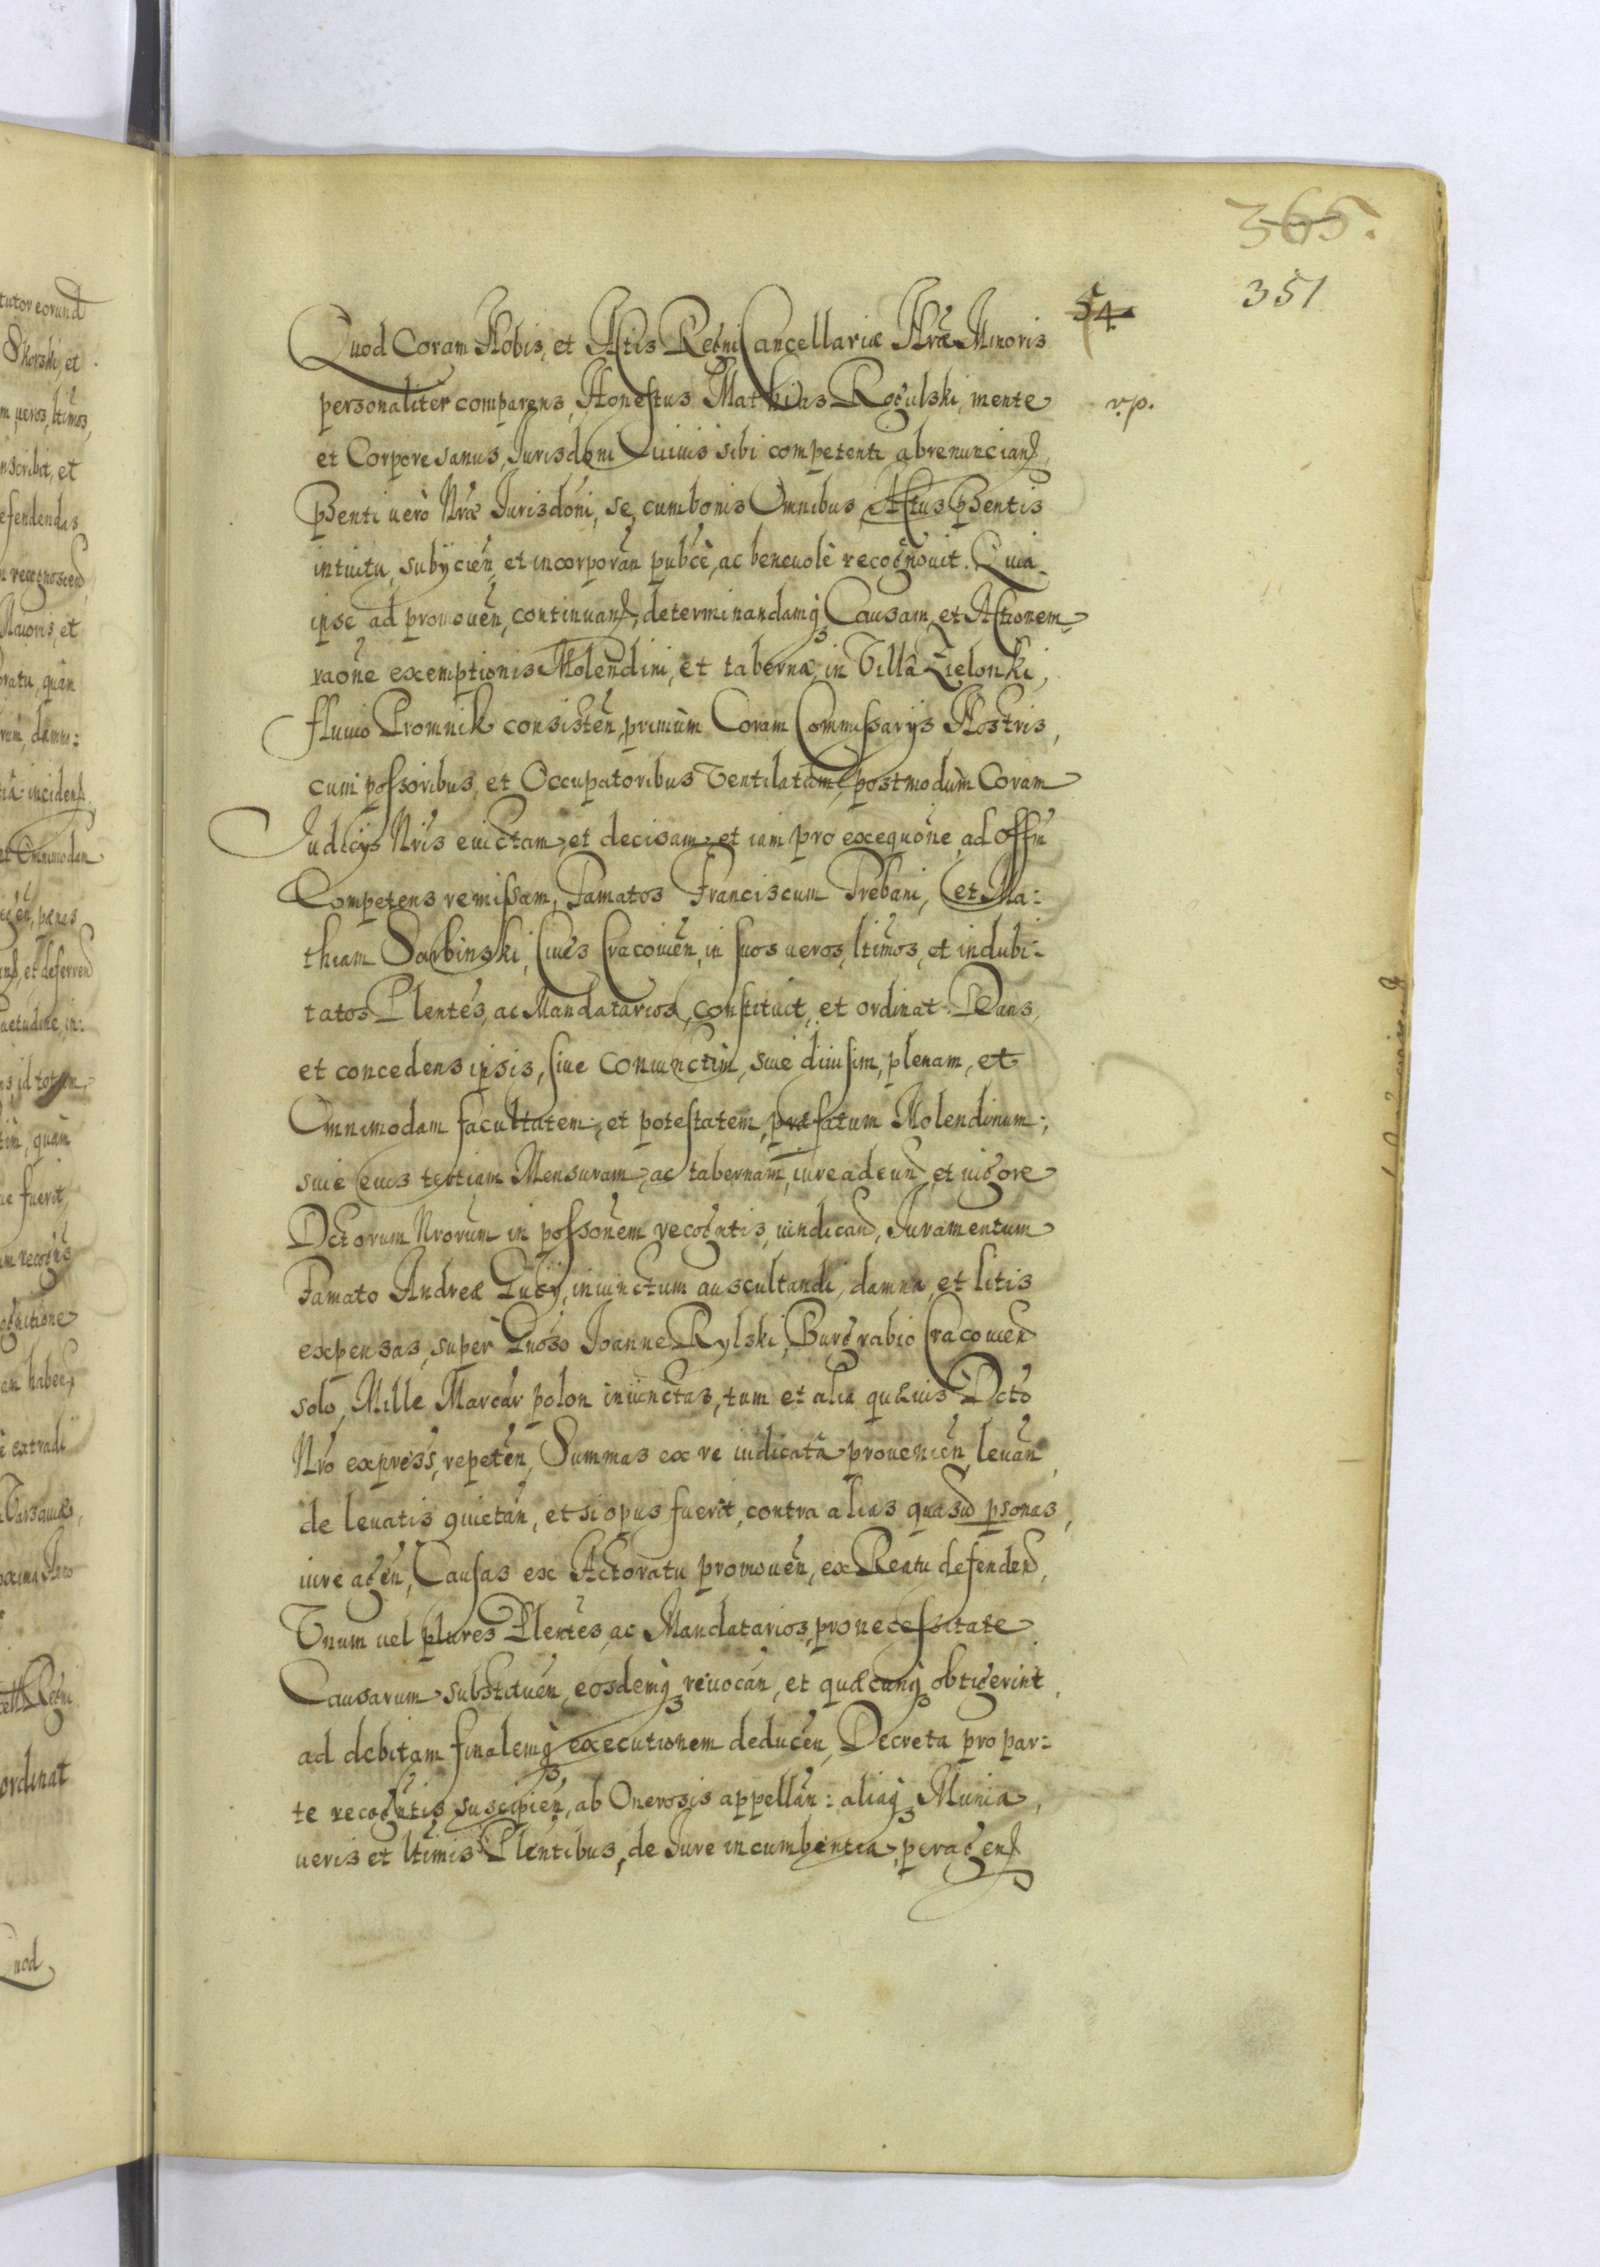 365.
351
54
Quod Coram Nobis, et Actis Regni Cancellariæ Nræ Minoris
personaliter comparens, Honestus Mathias Rogulski, mente
v.p.
et Corpore sanus, Jurisdoni Quiuis sibi competenti abrenuncian,
Pñenti uerò Nræ Jurisdoni, se, cum bonis Omnibus, Actus Pñentis
intuitu, subycien, et incorporan pubcè, ac beneuolè recognouit. Quia
ipse ad promouen, continuan, determinandamq Causam, et Actionem
raone exemptionis Molendini, et tabernæ, in Villa Zielonki,
fluuio Promnik consisten, primùm Coram Commissarijs Nostris,
cum possoribus, et Occupatoribus Ventilatam, postmodum Coram
Judicijs Nris euictam, et decisam, et iam pro exequone, ad Offm
Competens remissam, Famatos Franciscum Trebani, et Ma:
thiam Sarbinski, Ciues Cracouien, in suos ueros, ltimos, et indubi:
tatos Plentes, ac Mandatarios, constituit, et ordinat. Dans,
et concedens ipsis, siue coniunctim, siue diuisim, plenam, et
Omnimodam facultatem, et potestatem, præfatum Molendinum,
siue eius tertiam Mensuram, ac tabernam, iure adeun, et uigore
Dctorum Nrorum in possonem recogntis, uindican, Juramentum
Famato Andreæ iniunctum auscultandi, damna, et litis
expensas, super Gnoso Joanne Rylski, Burgrabio Cracouien
solo, Mille Marcar polon iniunctas, tum et alia quæuis Dcto
Nro express, repeten, Summas ex re iudicata prouenien, leuan,
de leuatis quietan, et si opus fuerit, contra alias quasuis psonas,
iure agen, Causas ex Actoratu promouen, ex Reatu defenden,
Vnum uel plures Plentes, ac Mandatarios, pro necessitate
Causarum substituen, eosdemq reuocan, et quæcunq obtigerint,
ad debitam finalemq executionem deducen, Decreta pro par:
te recogntis suscipien, ab Onerosis appellan: aliaq Munia,
ueris et ltimis Plentibus, de Jure incumbentia, peragen